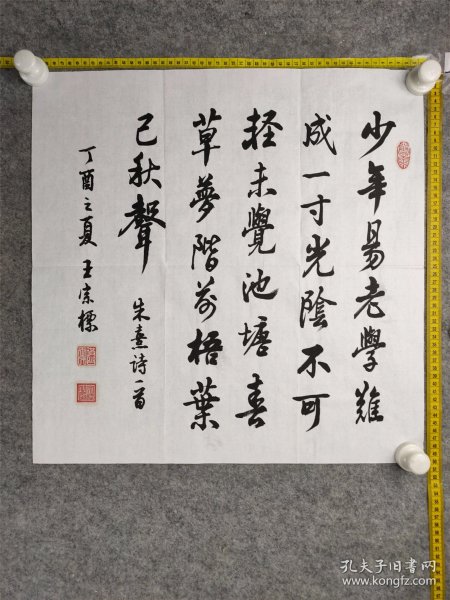 少年易老學難
成一寸光陰不可
輕未覺池塘春
草夢階前梧葉
已秋聲 朱熹诗一首
丁酉之夏 王宗標
孔夫子旧书网
www.kongfz.com